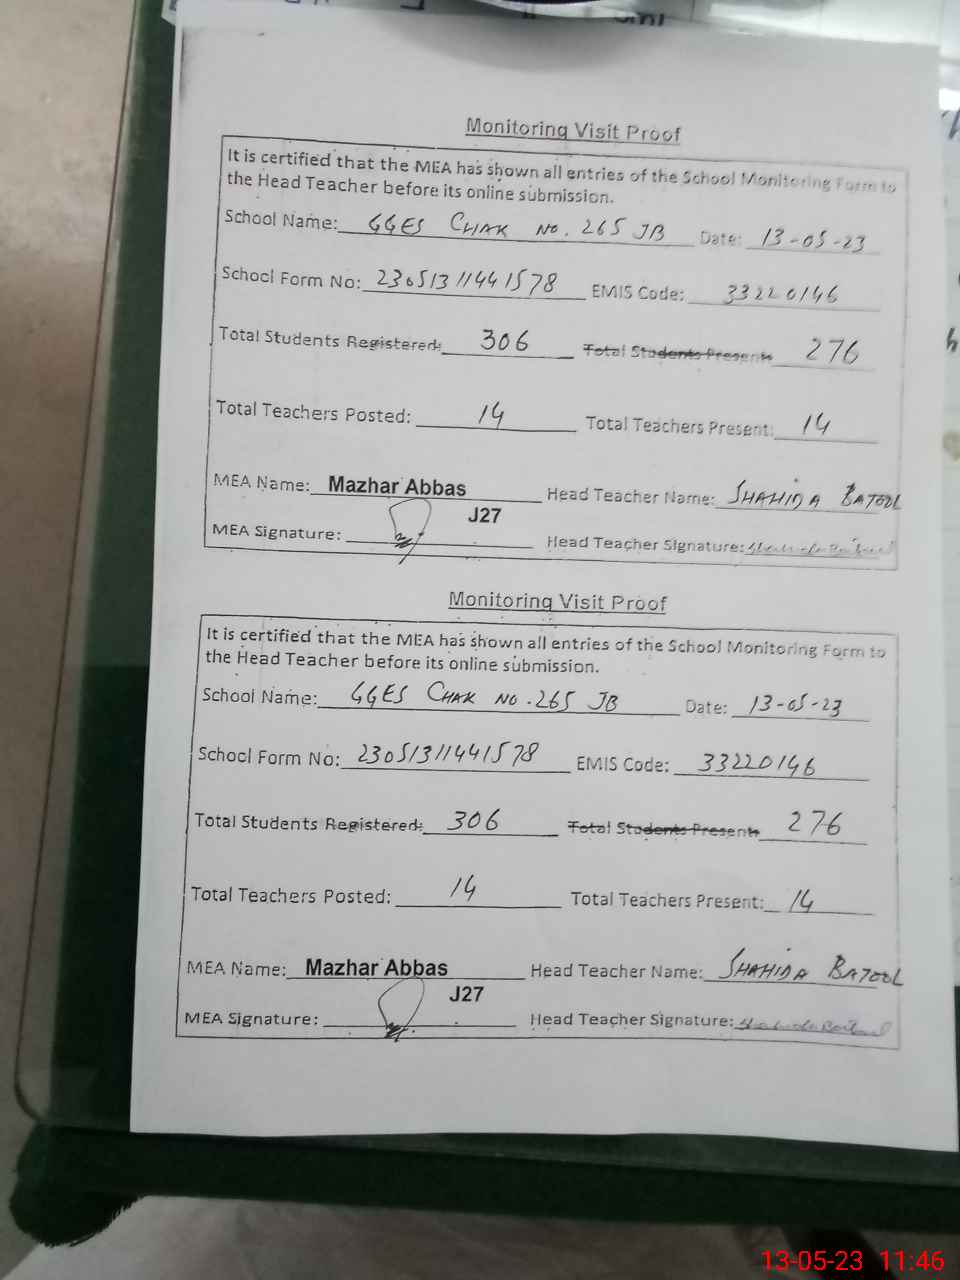 Monitoring Visit Proof
It is certified that the MEA has shown all entries of the School Monitoring Form to
the Head Teacher before its online submission.
School Name: GGES CHAK NO. 265 JB Date: 13-05-23
School Form No: 23051311441578 EMIS Code: 33220146
Total Students Registered: 306 Total Students Present: 276
Total Teachers Posted: 14 Total Teachers Present: 14
MEA Name: Mazhar Abbas Head Teacher Name: SHAHIDA BATOOL
J27
MEA Signature: Head Teacher Signature: Shahida Batool
Monitoring Visit Proof
It is certified that the MEA has shown all entries of the School Monitoring Form to
the Head Teacher before its online submission.
School Name: GGES CHAK NO. 265 JB Date: 13-05-23
School Form No: 23051311441578 EMIS Code: 33220146
Total Students Registered: 306 Total Students Present: 276
Total Teachers Posted: 14 Total Teachers Present: 14
MEA Name: Mazhar Abbas Head Teacher Name: SHAHIDA BATOOL
J27
MEA Signature: Head Teacher Signature: Shahida Batool
13-05-23 11:46